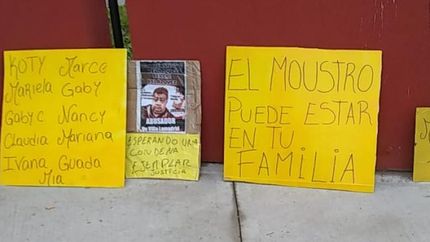 KOTY Marce
Mariela Gaby
Gaby C Nancy
Claudia Mariana
Ivana Guada
Mia
ABUSADOR
De Villa Lamadrid
ESPERANDO UNA
CONDENA
EJEMPLAR
JUSTICIA
EL MOUSTRO
PUEDE ESTAR
EN TU
FAMILIA